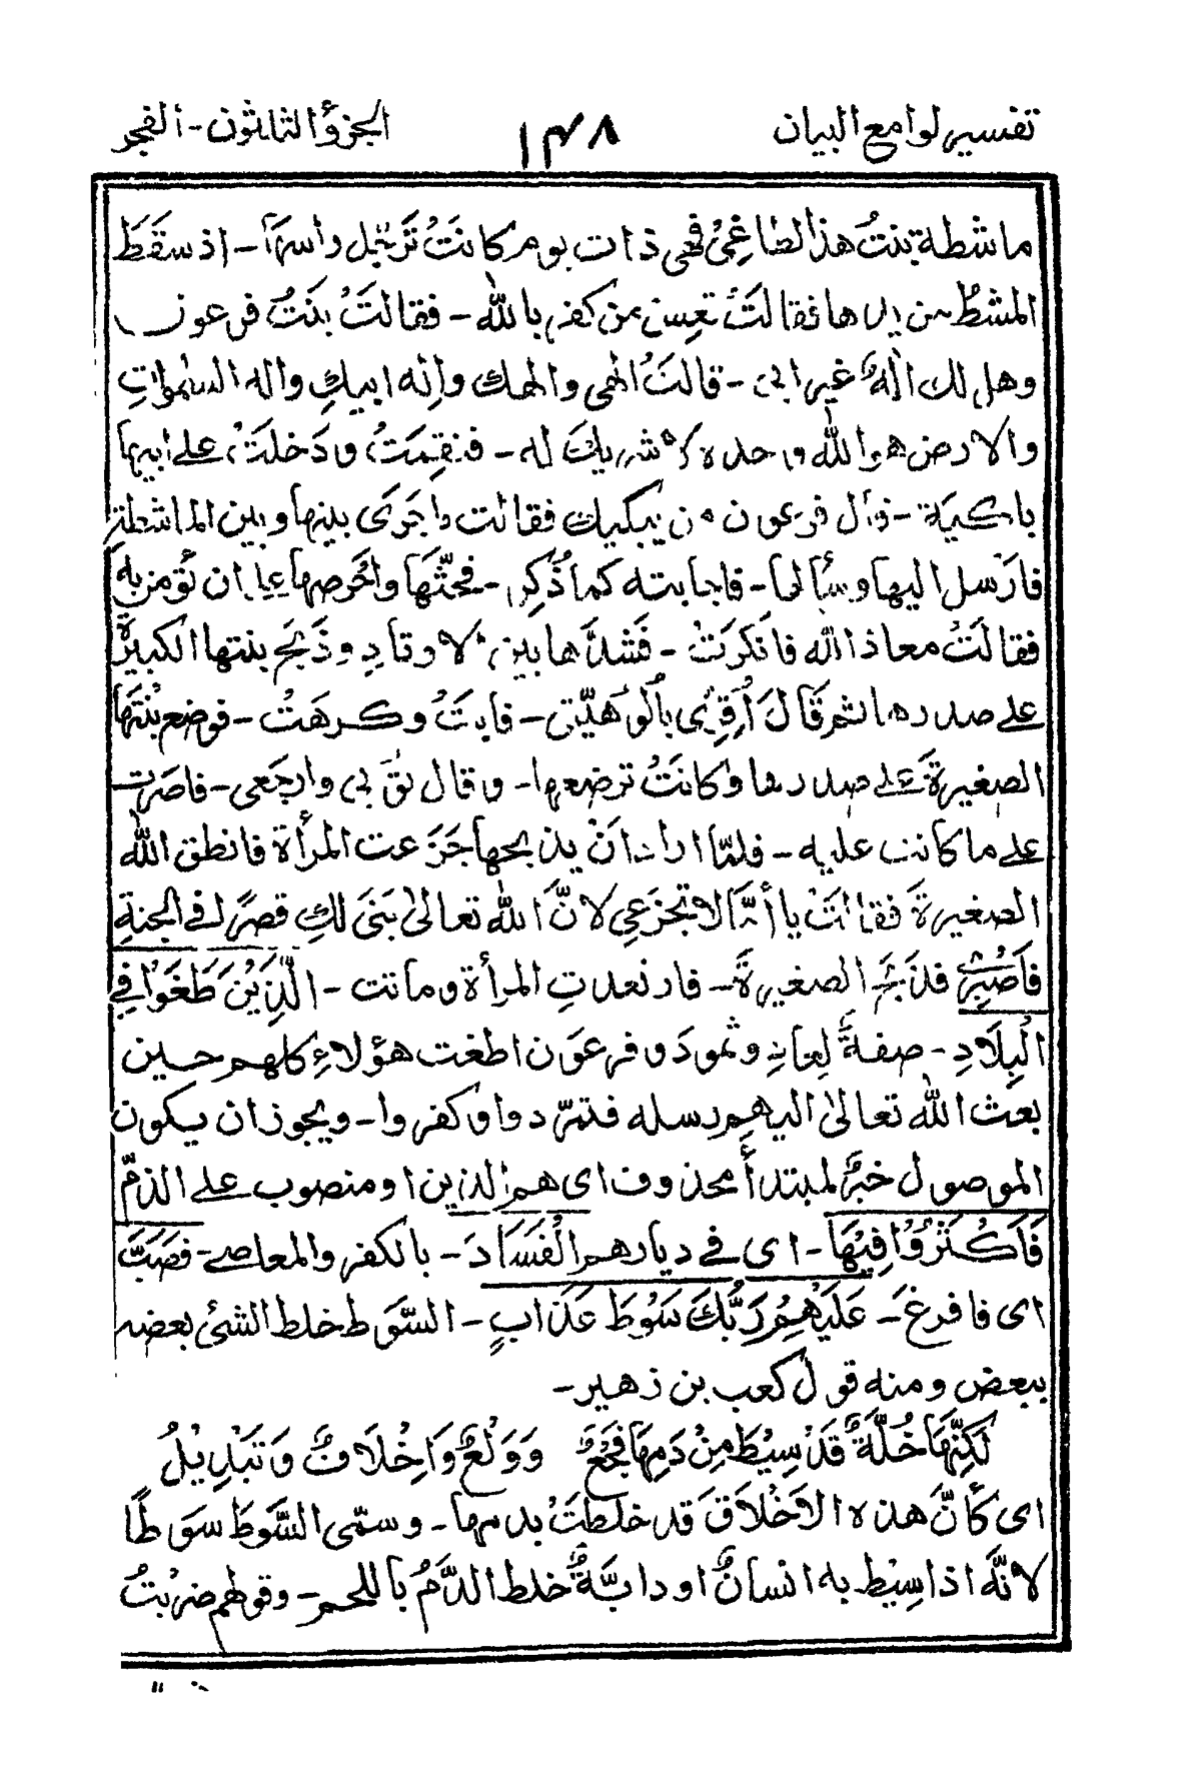 تفسير لوامع البيان ١٣٨ الجزؤ الثلثون - الفجر
ماشطة بنتُ هذا الطاغى فهى ذات يوم كانَتْ تَرَجّل رأسهَا - اذ سقَطَ
المشطُ من يدها فقالَتْ تعِسَ من كفر بالله - فقالَتْ بنتُ فرعون
وهل لك اِلٰهٌ غير ابى - قالَتْ الٰهى والٰهك واِلٰه ابيكِ واله السمٰواتِ
والارض هو الله وحده لا شريكَ له - فنقِمَتْ ودَخلَتْ على ابيها
باكيةً - فسأل فرعون من يبكيك فقالت ما جَرَى بينها وبين الماشطةِ
فارْسل اليها وسأَلها - فاجابته كما ذُكِر - فحثّها واحرصها على ان تؤمن به
فقالَتْ معاذ الله فانكرَتْ - فشدَّها بين الاوتادِ وذَبَح بنتها الكبيرةَ
على صدرها ثم قَالَ أَقِرِّى بأُلوهيّتى - فابتَ وكرهَتْ - فوضع بنْتَها
الصغيرةَ على صدرها وكانَتْ ترضعها - وقال توبى وارجعى - فاصَرّت
على ما كانت عليه - فلمّا اراد اَنْ يذبحها جَزَعت المرأة فانطق الله
الصغيرةَ فقالَتْ يا أمّاه لا تجزَعى لانَّ الله تعالىٰ بَنَى لكِ قصرًا فى الجنةِ
فاَصْبِرى فذَبَحَ الصغيرةَ - فارتعدتِ المرأة وماتت - الَّذِيْنَ طَغَوْا فِي
الْبِلَادِ - صفةٌ لِعادٍ وثمودَ وفرعَون اطغت هؤلاءِ كلهم حين
بعث الله تعالىٰ اليهم رسله فتمرّدوا وكفروا - ويجوز ان يكون
الموصول خبرٌ لمبتدأ محذوف اى هم الذين او منصوب على الذمّ
فَاَكْثَرُوْا فِيْهَا - اى فى ديارهم الْفَسَادَ - بالكفر والمعاصى - فَصَبَّ
اى فافرغَ - عَلَيْهِمْ رَبُّكَ سَوْطَ عَذَابٍ - السَّوط خلط الشئ بعضه
ببعض ومنه قول كعب بن زهير -
لَكِنَّهَا خُلَّةٌ قَدْ سِيْطَ مِنْ دَمِهَا فَجْعٌ وَوَلْعٌ وَاِخْلَافٌ وَتَبْدِيْلُ
اى كأنَّ هذه الاَخْلاَقَ قد خلطتْ بدمها - وسمّى السَّوطَ سَوطًا
لانَّه اذا سِيْط به انسانٌ او دابّةٌ خلط الدَّمُ باللحم - وقولهم ضربتُ